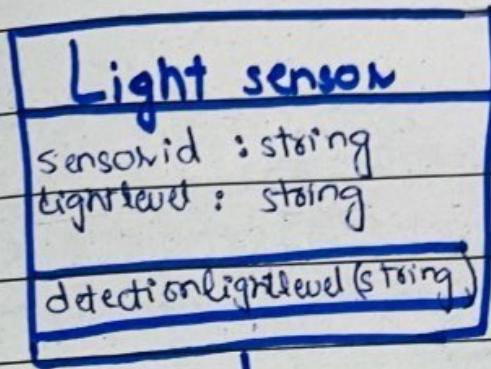 Light sensor
sensorid : string
lightlevel : string
detectionlightlevel(string)